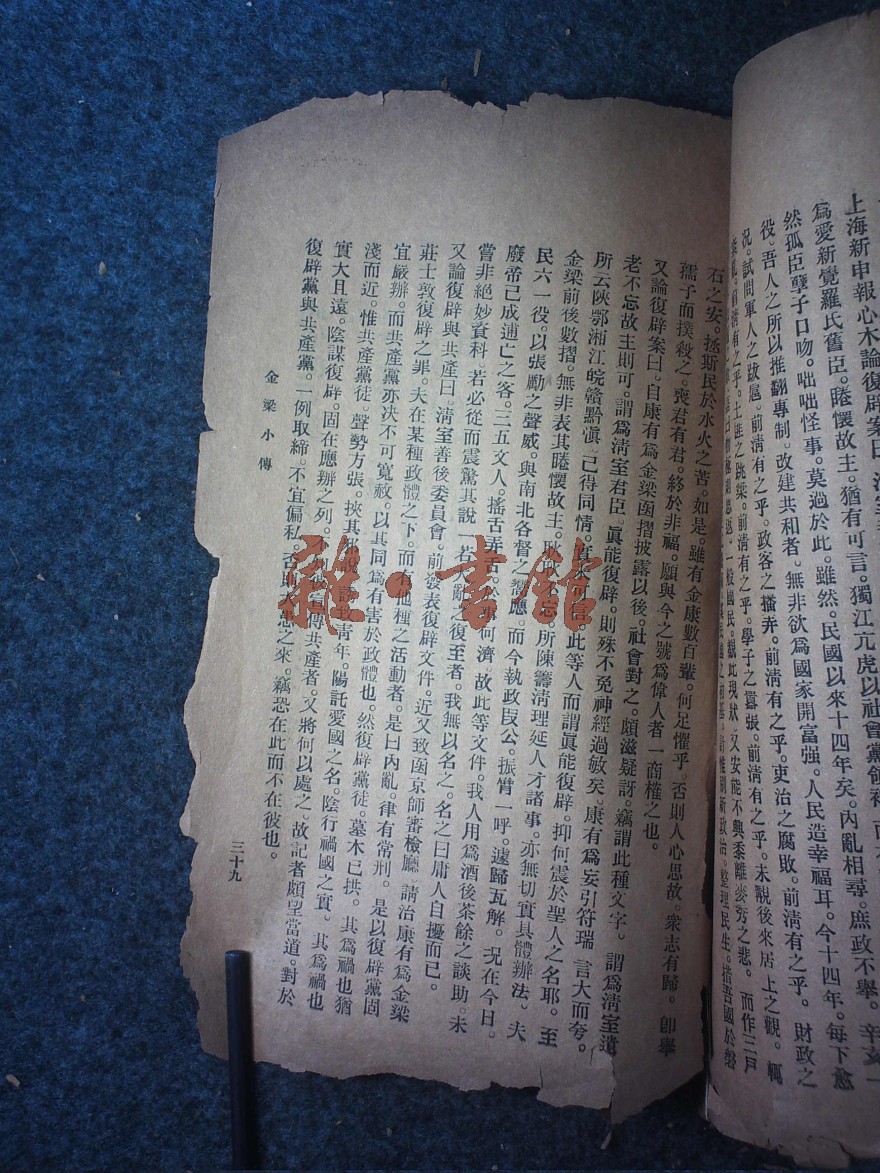 上海新申報心木論復辟案曰
爲愛新覺羅氏舊臣。睠懷故主。猶有可言。獨江亢虎以社會黨領袖
然孤臣孽子口吻。咄咄怪事。莫過於此。雖然。民國以來十四年矣。內亂相尋。庶政不舉。辛亥一
役。吾人之所以推翻專制。改建共和者。無非欲爲國家開富强。人民造幸福耳。今十四年。每下愈
況。試問軍人之跋扈。前淸有之乎。政客之播弄。前淸有之乎。吏治之腐敗。前淸有之乎。財政之
前淸有之乎。土匪之跳梁。前淸有之乎。學子之囂張。前淸有之乎。未覩後來居上之觀。輒
一般國民。覩此現狀。又安能不興黍離麥秀之悲。而作三戶
刷新政治。整理民生。措吾國於磐
石之安。拯斯民於水火之苦。如是。雖有金康數百輩。何足懼乎。否則人心思故。衆志有歸。卽舉
孺子而撲殺之。喪君有君。終於非福。願與今之號爲偉人者一商榷之也。
又論復辟案曰。自康有爲金梁函摺披露以後。社會對之。頗滋疑訝。竊謂此種文字。謂爲淸室遺
老不忘故主則可。謂爲淸室君臣。眞能復辟。則殊不免神經過敏矣。康有爲妄引符瑞。言大而夸。
所云陝鄂湘江皖贛黔滇。已得同情。實未可信。此等人而謂眞能復辟。抑何震於聖人之名耶。至
金梁前後數摺。無非表其睠懷故主。耿耿不忘。所陳籌淸理延人才諸事。亦無切實具體辦法。夫
民六一役。以張勵之聲威。與南北各督之響應。而今執政段公。振臂一呼。遽歸瓦解。況在今日。
廢帝已成逋亡之客。三五文人。搖舌弄舌。何濟。故此等文件。我人用爲酒後茶餘之談助。未
嘗非絕妙資料。若必從而震驚其說。一若大辭之復至者。我無以名之。名之曰庸人自擾而已。
又論復辟與共產曰。淸室善後委員會。前發表復辟文件。近又致函京師審檢廳。請治康有爲金梁
莊士敦復辟之罪。夫在某種政體之下。而有他種之活動者。是曰內亂。律有常刑。是以復辟黨固
宜嚴辦。而共產黨亦決不可寬赦。以其同爲有害於政體也。然復辟黨徒。墓木已拱。其爲禍也猶
淺而近。惟共產黨徒。聲勢方張。挾其靑年。陽託愛國之名。陰行禍國之實。其爲禍也
實大且遠。陰謀復辟。固在應辦之列。宣傳共產者。又將何以處之。故記者頗望當道。對於
復辟黨與共產黨。一例取締。不宜偏私。否則大患之來。竊恐在此而不在彼也。
金梁小傳
三十九
雜·書館